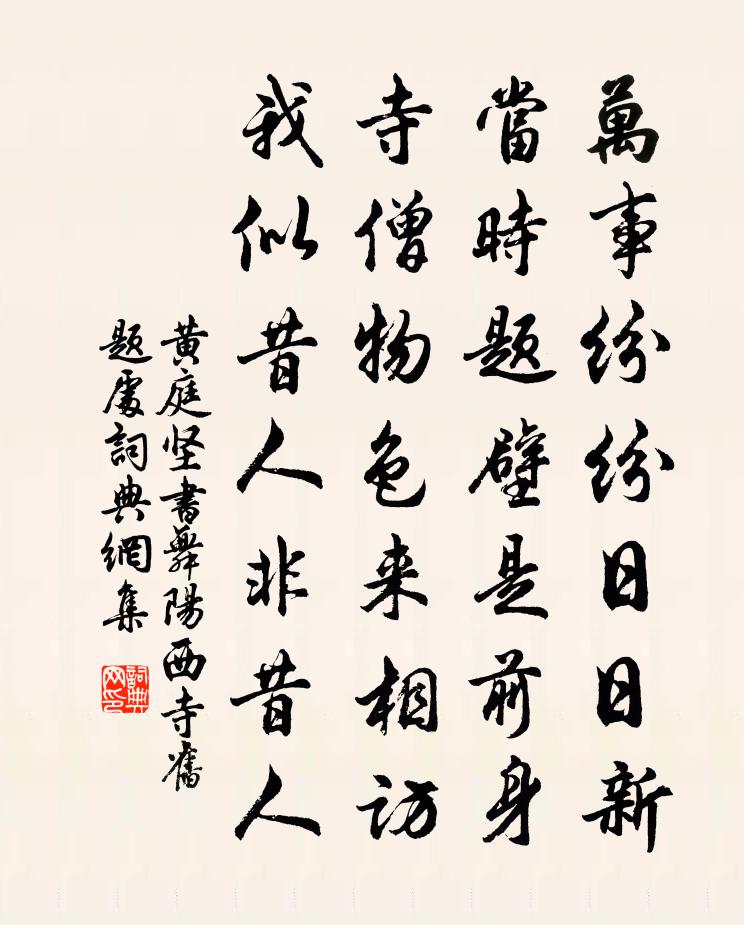 萬事紛紛日日新
當時題壁是前身
寺僧物色来相訪
我似昔人非昔人
黄庭坚書舞陽西寺舊
題處詞典網集
詞典
网印